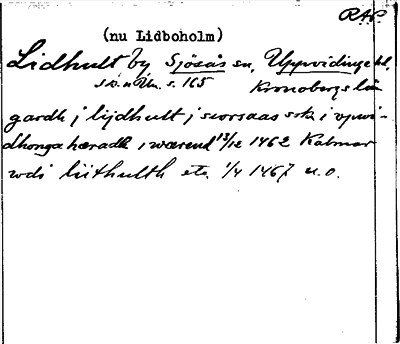 RAP.
(nu Lidboholm)
Lidhult by Sjösås sn, Uppvidinge hd,
s. 165 Kronobergs län
gardh j lijdhult j siorsaas sokn i vpwi-
dhonga hæradh i wærend 13/12 1462 Kalmar
wdi liithulth etc. 1/4 1467 u.o.